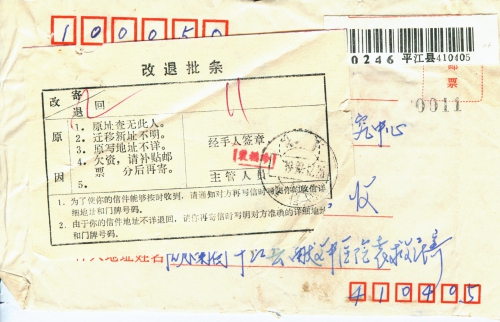 100050
改退批条
0246 平江县410405
邮票
0011
改 寄
退 回
原因
1. 原址查无此人。
2. 迁移新址不明。
3. 原写地址不详。
4. 欠资,请补贴邮票 分后再寄。
5.
经手人签章
主管人员
1. 为了使你的信件能够按时收到,请通知对方再写信时
细地址和门牌号码。
2. 由于你的信件地址不详退回,请你再寄信时写明对方准确的详细地址
和门牌号码。
究中心
收
地址姓名
410405